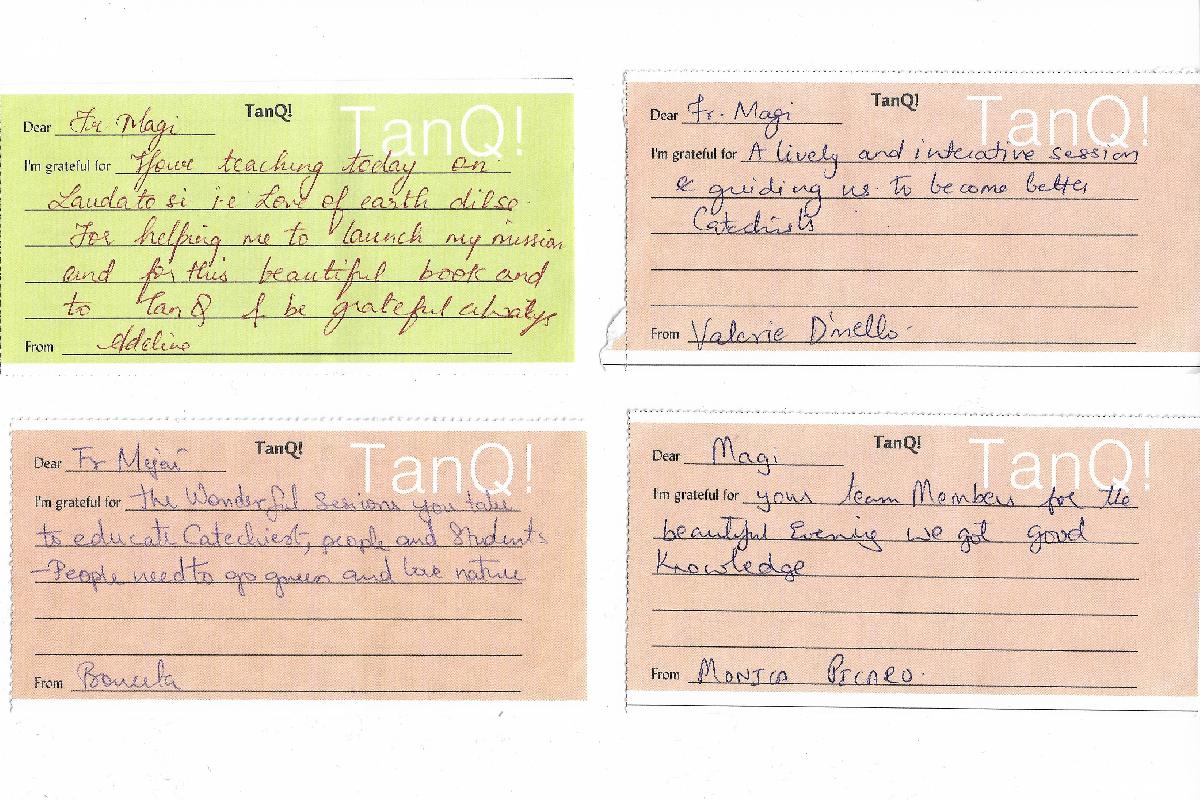 TanQ!
TanQ!
Dear Fr Magi
I'm grateful for Your teaching today on
Laudato si i.e Love of earth dilse.
For helping me to launch my mission
and for this beautiful book and
to TanQ & be grateful always
From Adeline
TanQ!
TanQ!
Dear Fr. Magi
I'm grateful for A lively and interative session
& guiding us to become better
Catechists
From Valarie D'mello.
TanQ!
TanQ!
Dear Fr
I'm grateful for the Wonderful Sessions you take
to educate Catechiest, people and Students
- People need to go green and love nature
From
TanQ!
TanQ!
Dear Magi
I'm grateful for your team Members for the
beautiful Evening we got good
Knowledge
From MONICA PICARO.